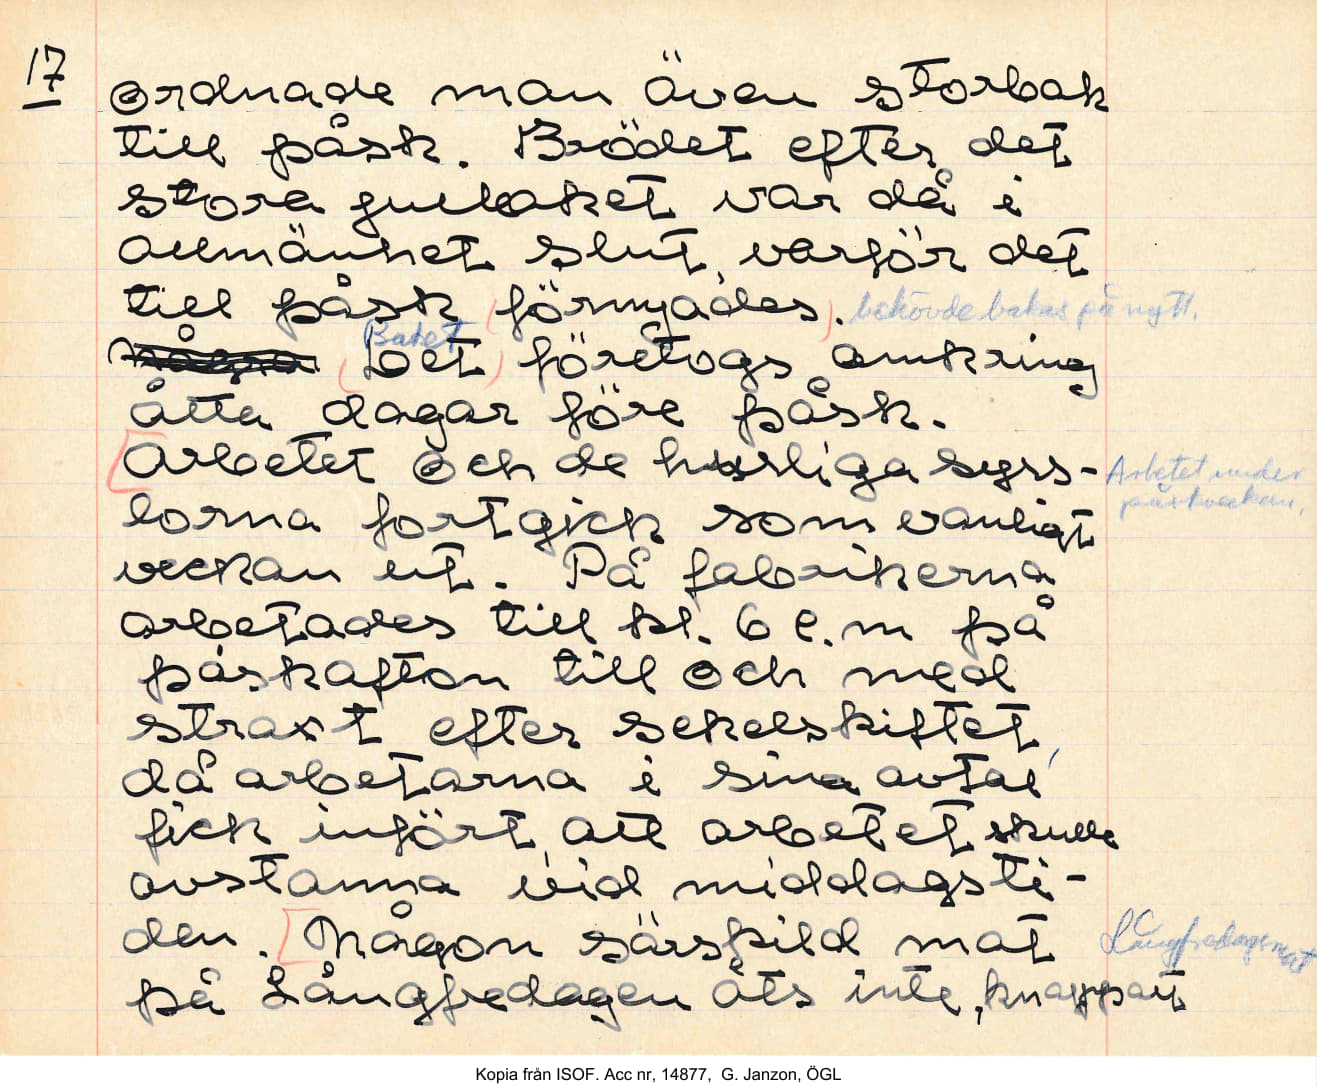 17
ordnade man även storbak
till påsk. Brödet efter det
stora julbaket var då i
allmänhet slut, varför det
till påsk (förnyades). behövde bakas på nytt.
Baket
(Det) företogs omkring
åtta dagar före påsk.
[Arbetet och de husliga syss- Arbetet under
lorna fortgick som vanligt påskveckan.
veckan ut. På fabrikerna
arbetades till kl. 6 e.m på
påskafton till och med
straxt efter sekelskiftet,
då arbetarna i sina avtal
fick infört, att arbetet skulle
avstanna vid middagsti-
den. [Någon särskild mat Långfredagsmat
på Långfredagen åts inte, knappast
Kopia från ISOF. Acc nr, 14877, G. Janzon, ÖGL